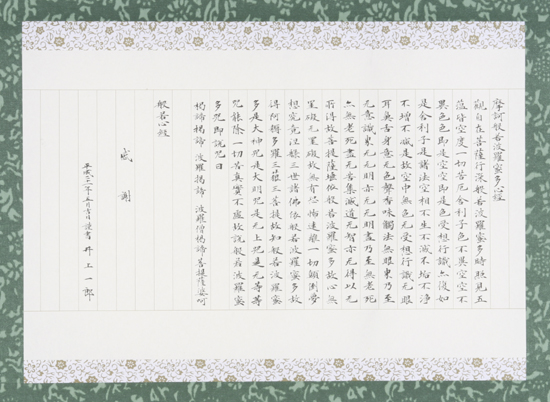 摩訶般若波羅蜜多心経
観自在菩薩行深般若波羅蜜多時照見五
蘊皆空度一切苦厄舎利子色不異空空不
異色色即是空空即是色受想行識亦復如
是舎利子是諸法空相不生不滅不垢不浄
不増不減是故空中無色无受想行識无眼
耳鼻舌身意无色聲香味觸法无眼界乃至
无意識界无无明亦无无明盡乃至無老死
亦無老死盡无苦集滅道无智亦无得以无
所得故菩提薩埵依般若波羅蜜多故心無
罣礙无罣礙故無有恐怖遠離一切顛倒夢
想究竟涅槃三世諸佛依般若波羅蜜多故
得阿耨多羅三藐三菩提故知般若波羅蜜
多是大神咒是大明咒是无上咒是无等等
咒能除一切苦真實不虚故説般若波羅蜜
多咒即説咒曰
揭諦揭諦 波羅揭諦 波羅僧揭諦菩提薩婆訶
般若心経
感謝
年五月吉日謹書 井上一郎